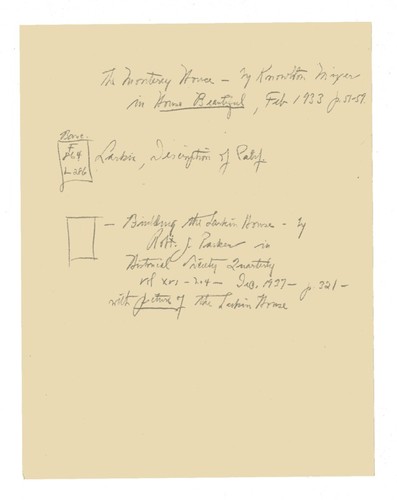 The Monterey House – by Knowlton Mizner
in House Beautiful, Feb 1933 p. 57-59.
Banc.
F
864
L326
Larkin, Description of Calif.
– Building the Larkin House – by
Robt. J. Parker in
Historical Society Quarterly
vol xvi – 4 – Dec. 1937 – p. 321 –
with picture of the Larkin House